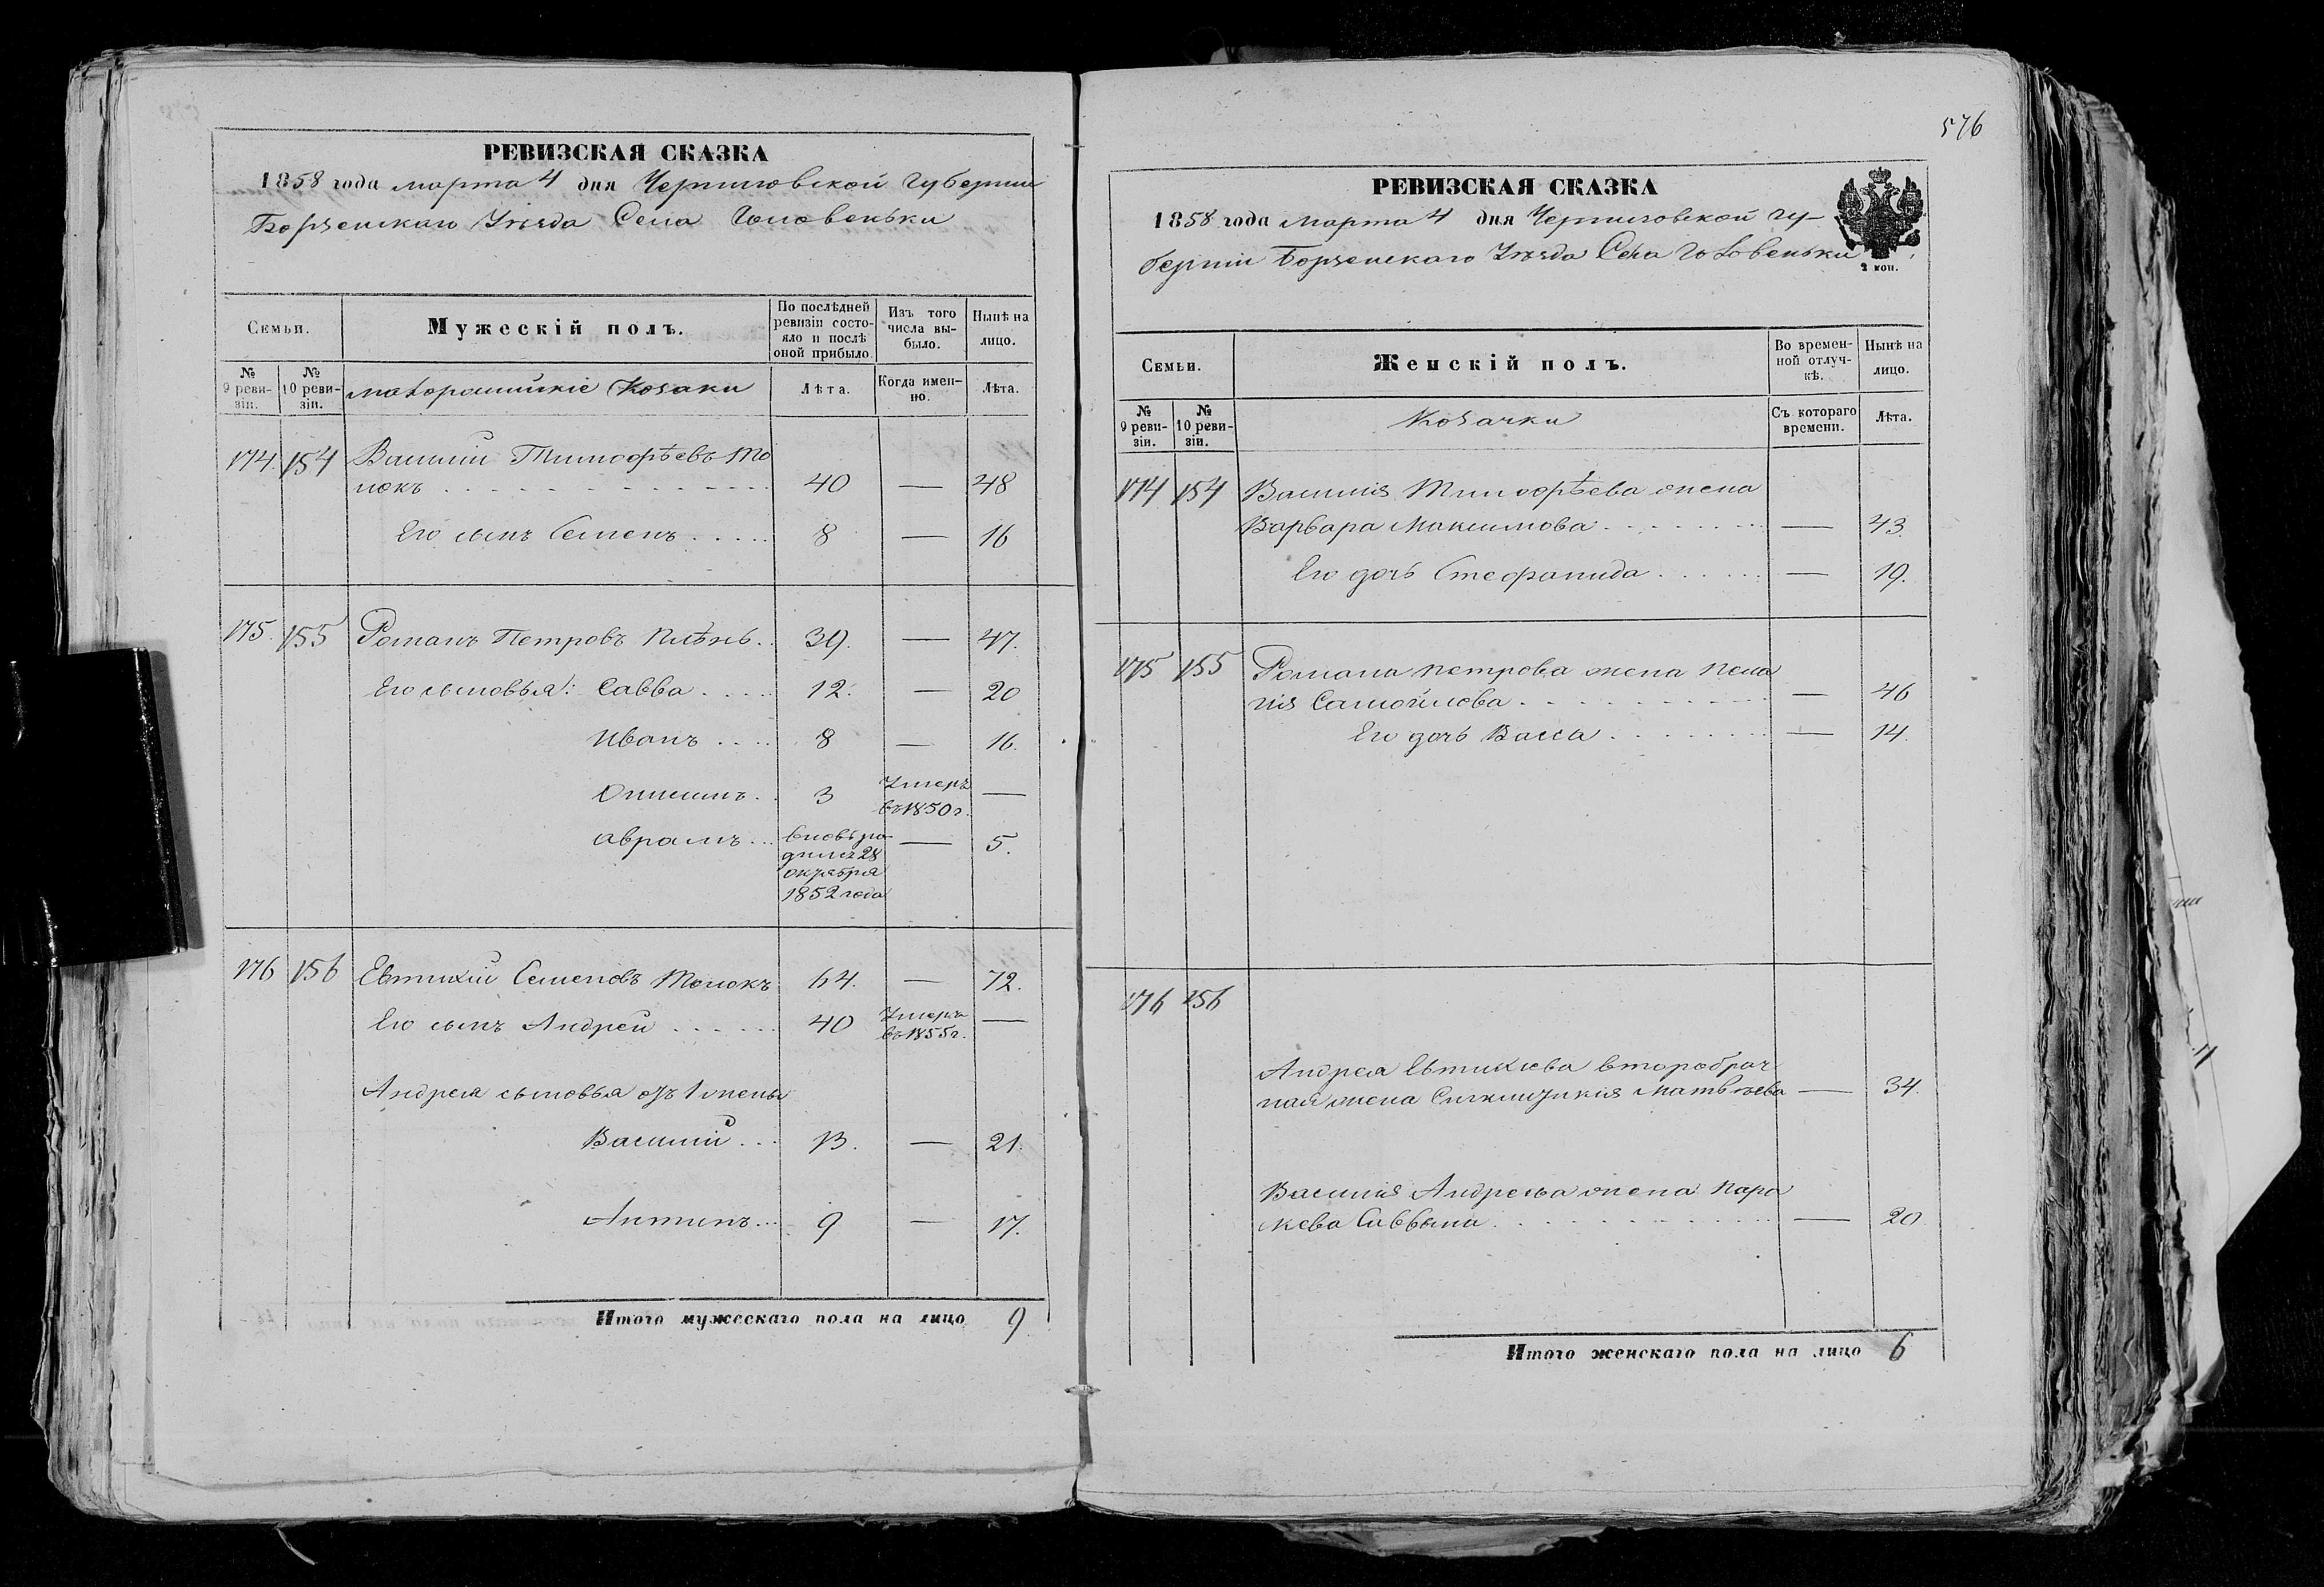 РЕВИЗСКАЯ СКАЗКА
1858 года марта 4 дня Черниговской Губернии
Борзенскаго Уѣзда Села Головеньки
Семьи.
Мужескій полъ.
По послѣдней ревизіи состо-
яло и послѣ оной прибыло.
Изъ того числа вы-
было.
Нынѣ на лицо.
№ 9 реви-
зіи.
№ 10 реви-
зіи.
малороссийскіе Козаки
Лѣта.
Когда имен-
но.
Лѣта.
174. 154 Василий Тимофѣевъ То
локъ 40 — 48
Его сынъ Семенъ 8 — 16
175. 155 Романъ Петровъ 39. — 47.
Его сыновья: Савва 12. — 20
Иванъ 8 — 16.
Онисимъ 3 Умеръ въ 1850 г. —
Аврамъ вновь ро
дился 28
октября
1852 года — 5.
176 156 Евтихий Семеновъ Толокъ 64. — 72.
Его сынъ Андрей 40 Умеръ въ 1855 г. —
Андрея сыновья отъ 1 жены
Василий 13. — 21.
Антипъ 9 — 17.
Итого мужескаго пола на лицо 9
576
РЕВИЗСКАЯ СКАЗКА
1858 года Марта 4 дня Черниговской Гу-
берніи Борзенскаго Уѣзда Села Головеньки
2 коп.
Семьи.
Женскій полъ.
Во времен-
ной отлуч-
кѣ.
Нынѣ на лицо.
№ 9 реви-
зіи.
№ 10 реви-
зіи.
Козачки
Съ котораго времени.
Лѣта.
174 154 Василия Тимофѣева жена
Варвара Максимова — 43.
Его дочь Стефанида — 19.
175 155 Романа Петрова жена Пела
гия Самойлова — 46
Его дочь Васса — 14.
176 156
Андрея Евтихиева второбрач
ная жена Матвѣева — 34.
Василия Андреева жена Пара
скева Саввина — 20.
Итого женскаго пола на лицо 6